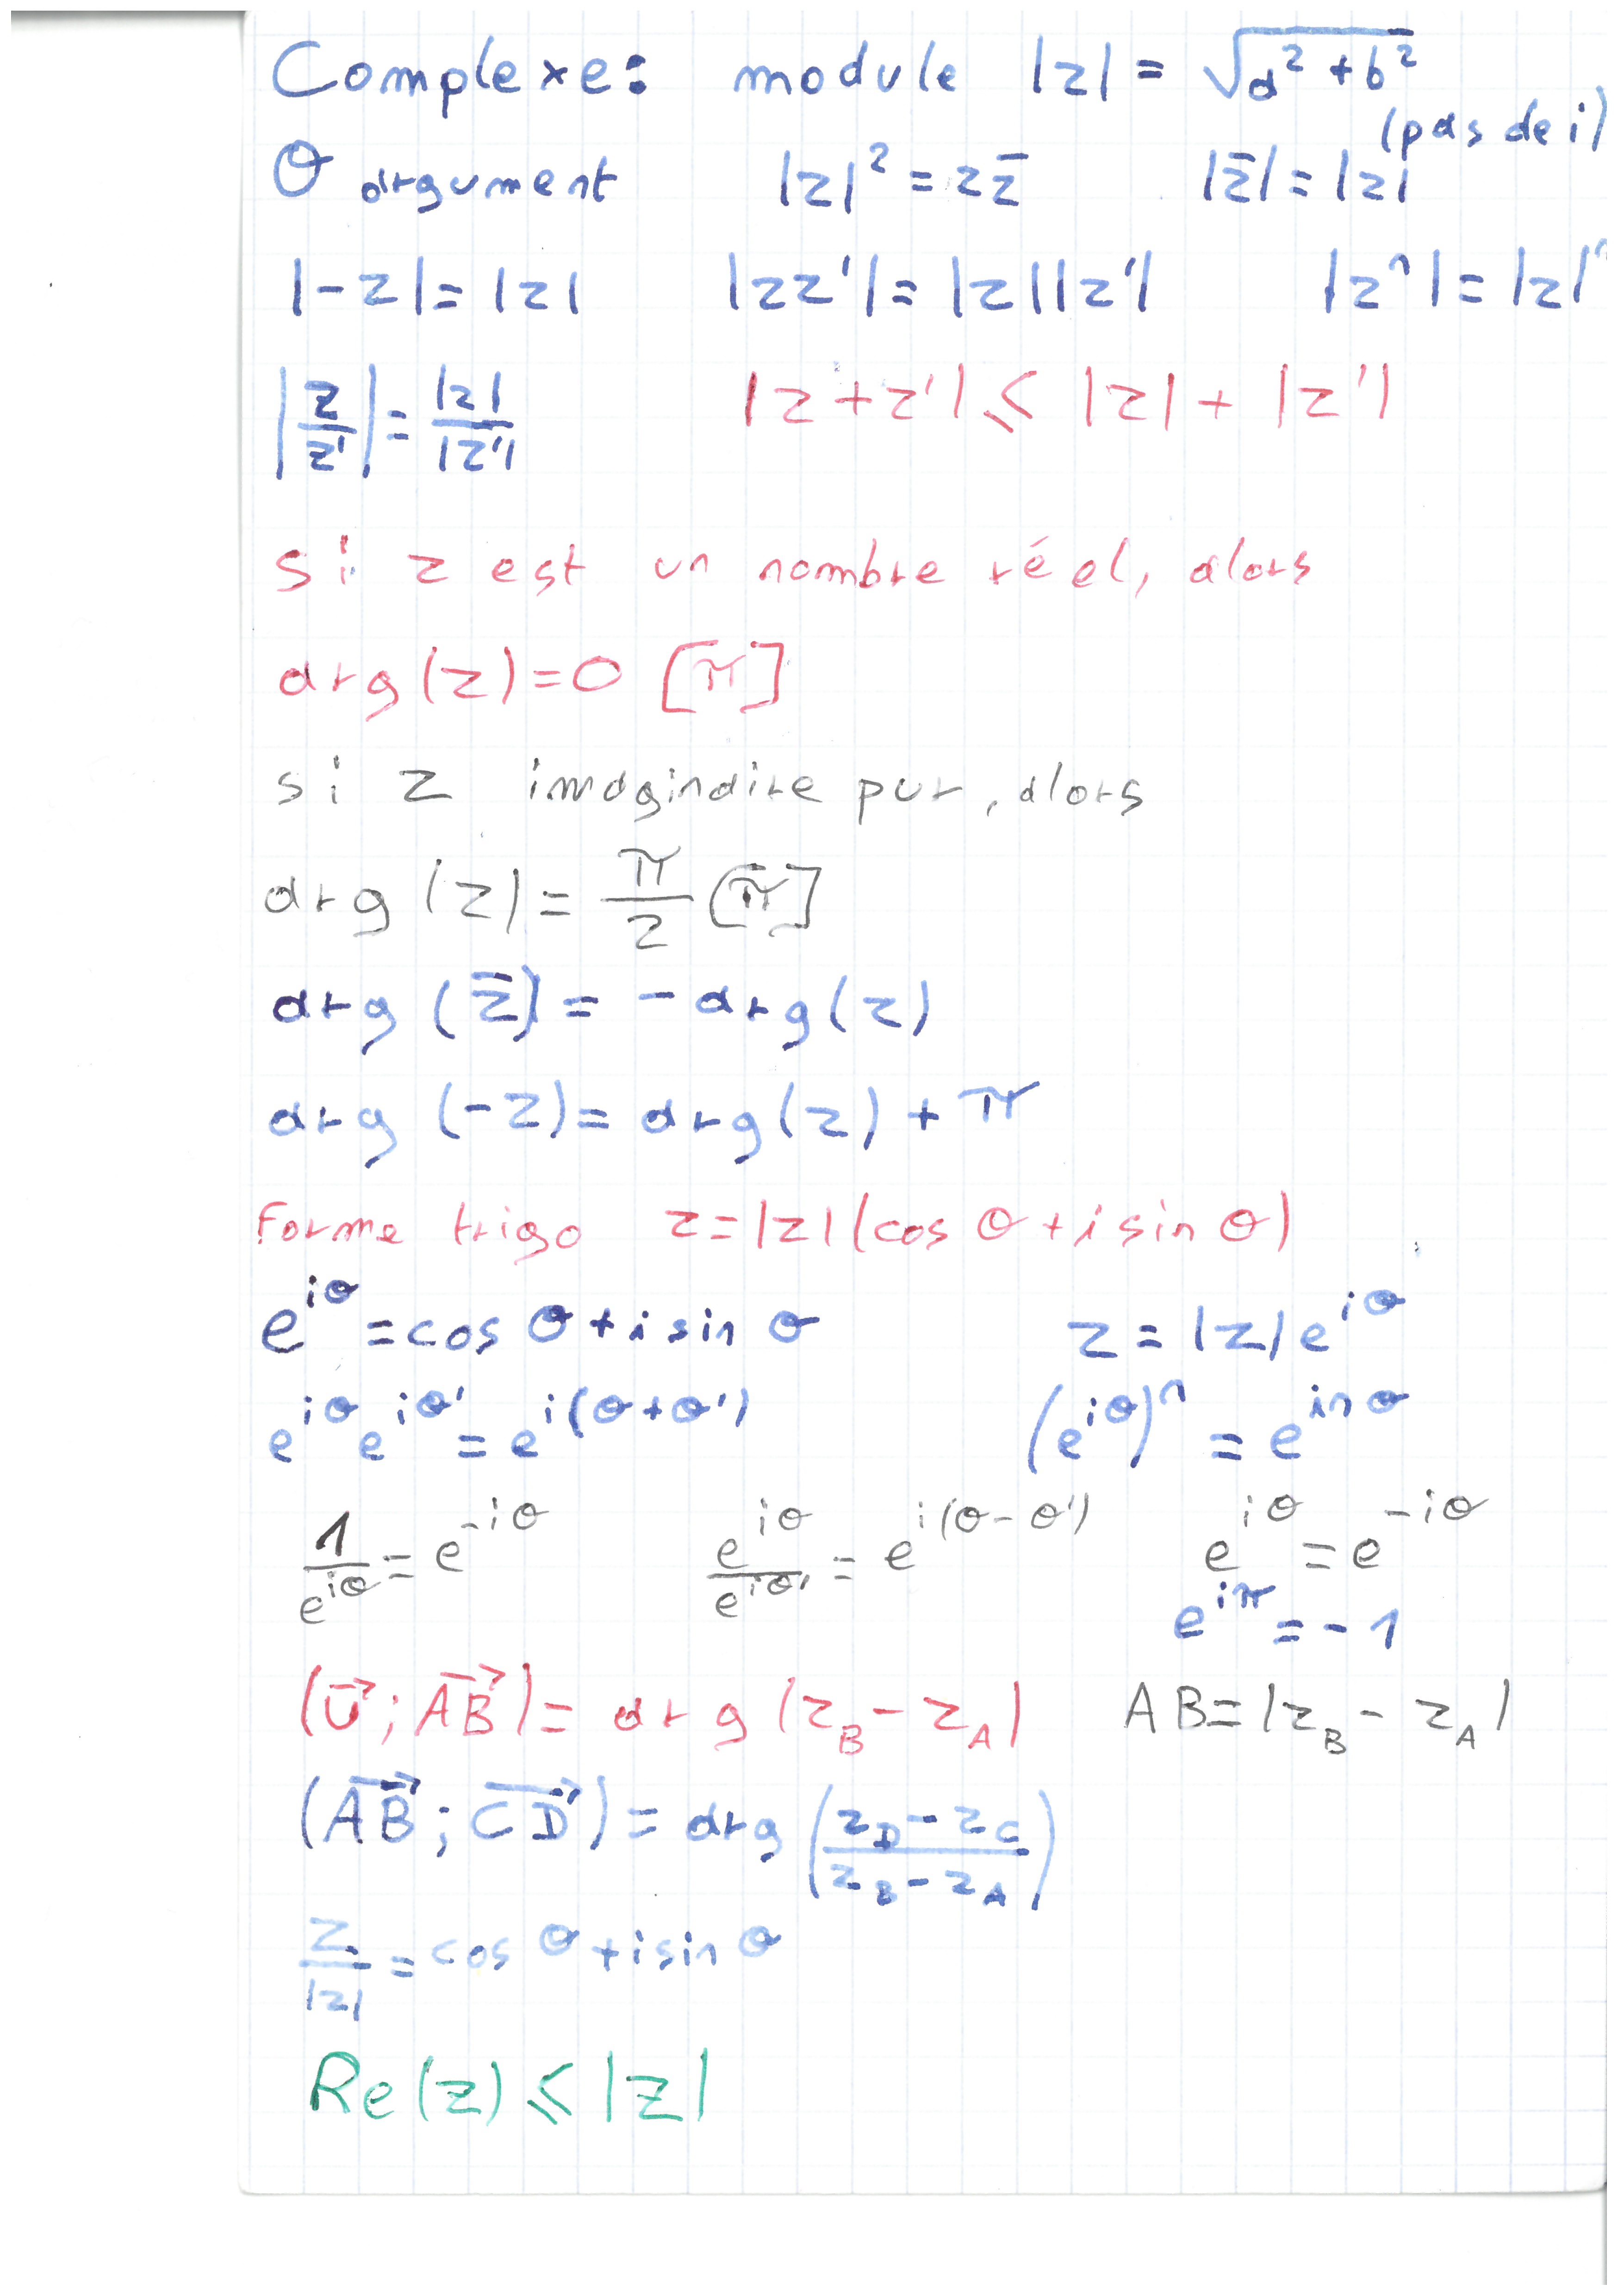 Complexe: module |z| = √(a² + b²)
(pas de i)
θ argument |z|² = zz̄ |z̄| = |z|
|-z| = |z| |zz'| = |z||z'| |zⁿ| = |z|ⁿ
|z/z'| = |z|/|z'| |z + z'| ≤ |z| + |z'|
si z est un nombre réel, alors
arg(z) = 0 [π]
si z imaginaire pur, alors
arg(z) = π/2 [π]
arg(z̄) = - arg(z)
arg(-z) = arg(z) + π
Forme trigo z = |z|(cos θ + i sin θ)
e^(iθ) = cos θ + i sin θ z = |z|e^(iθ)
e^(iθ) e^(iθ') = e^(i(θ+θ')) (e^(iθ))ⁿ = e^(inθ)
1/e^(iθ) = e^(-iθ) e^(iθ)/e^(iθ') = e^(i(θ-θ')) e^(iθ) = e^(-iθ)
e^(iπ) = -1
(u⃗ ; AB⃗) = arg(z_B - z_A) AB = |z_B - z_A|
(AB⃗ ; CD⃗) = arg((z_D - z_C)/(z_B - z_A))
z/|z| = cos θ + i sin θ
Re(z) ≤ |z|